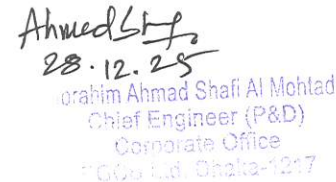 Ahmed
28.12.25
orahim Ahmad Shafi Al Mohtad
Chief Engineer (P&D)
Corporate Office
Ltd. Dhaka-1217